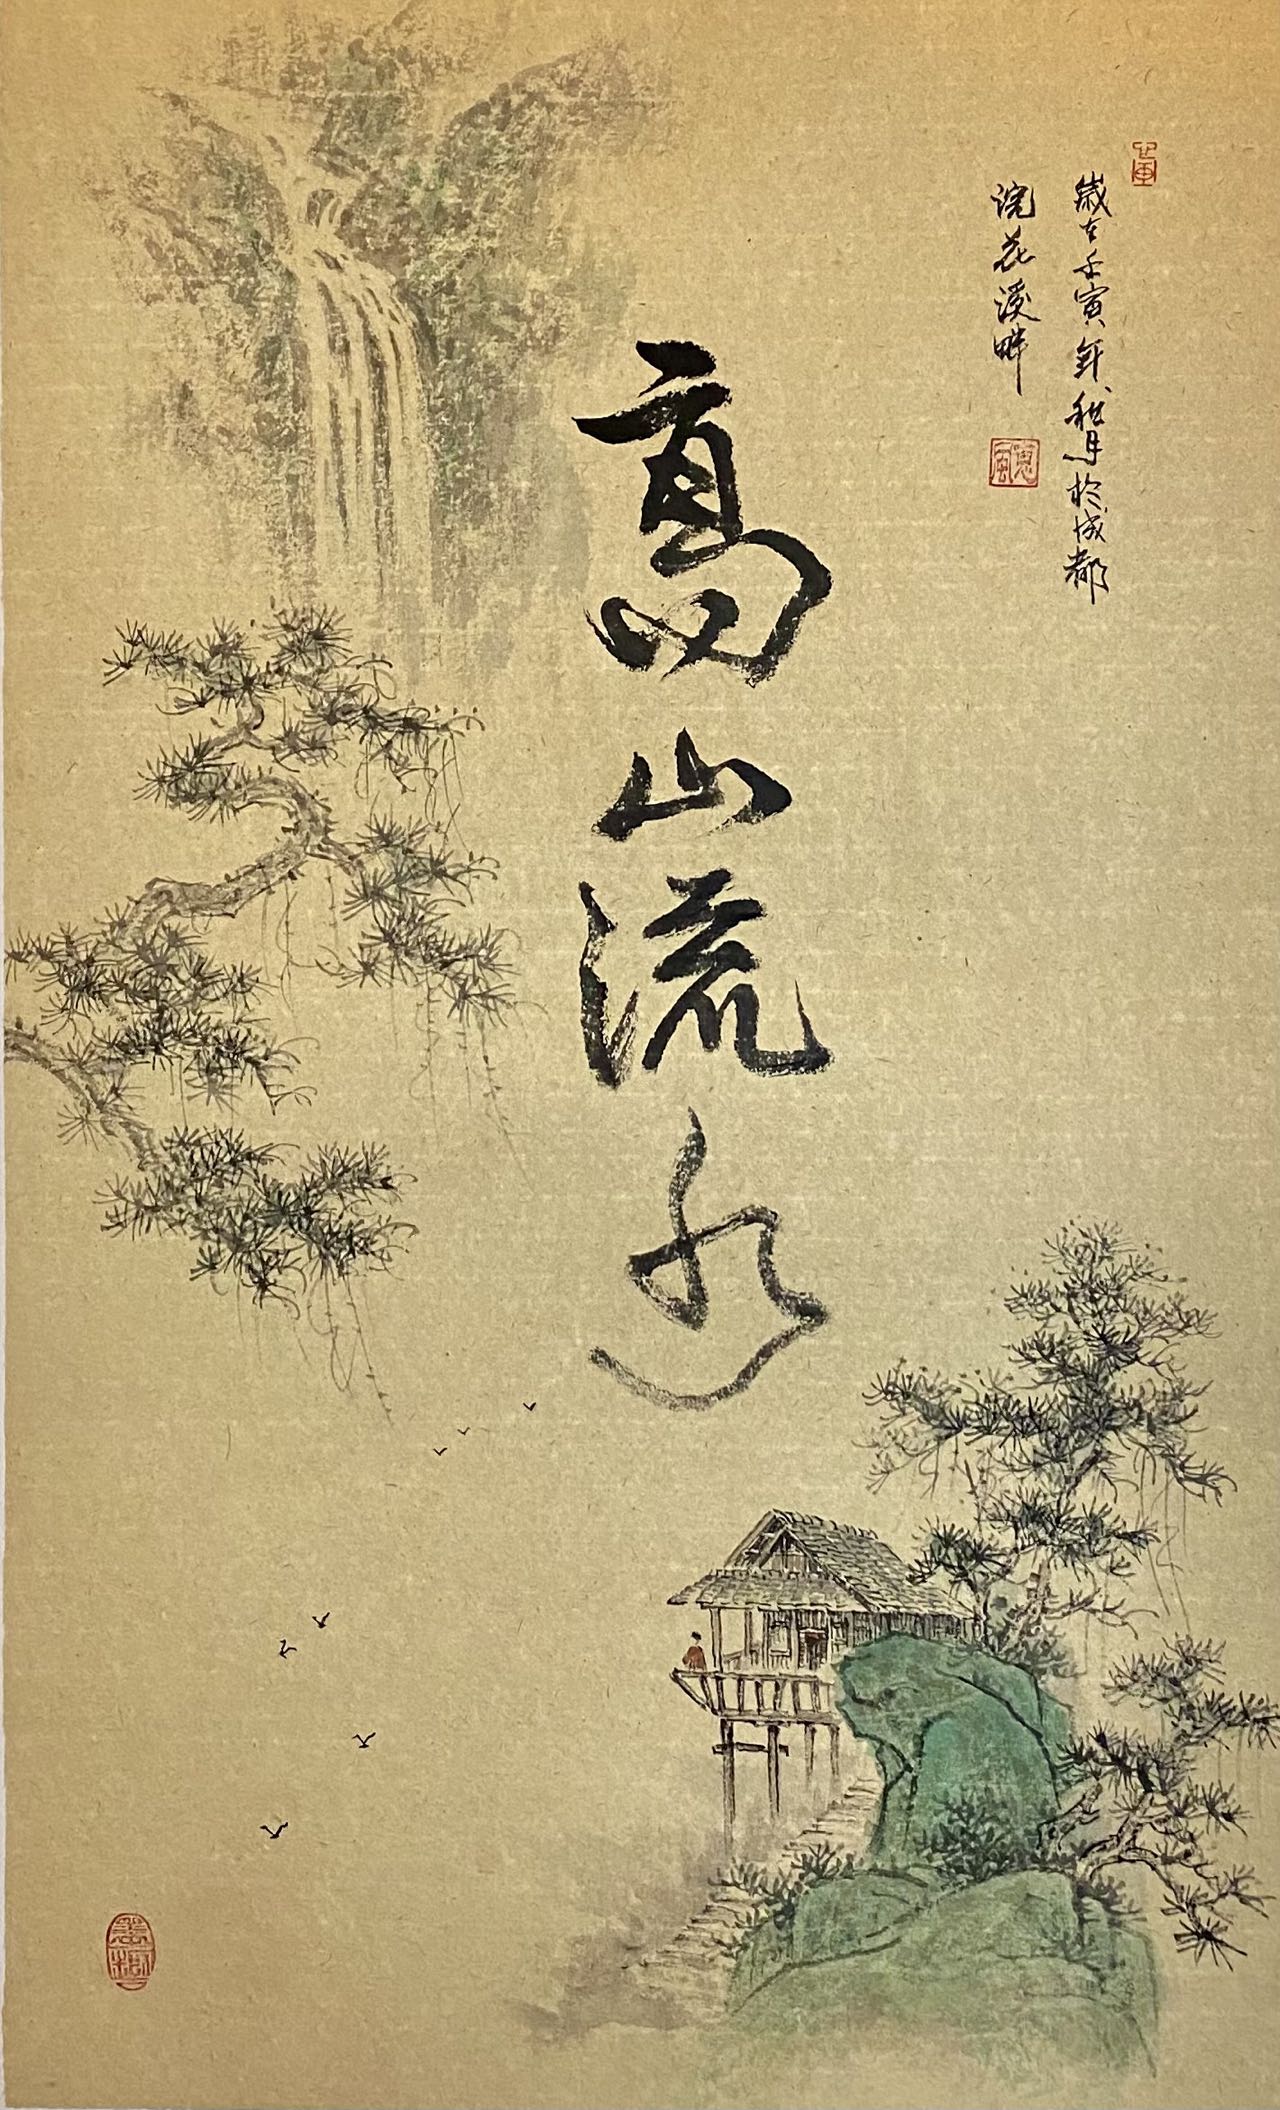 歲在壬寅年秋月於成都
浣花溪畔
高山流水